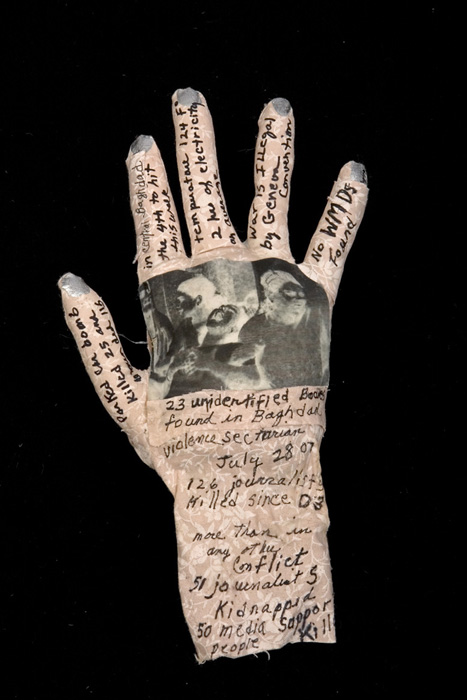 Parked car bomb
Killed 25 and
in central Baghdad
the 4th to hit
this week
temperature 124 F°
2 hrs of electricity
on average
war is Illegal
by Geneva
Convention
No WMDs
Found
23 unidentified Bodies
found in Baghdad
violence sectarian
July 28 07
126 journalists
Killed since 03
more than in
any other
Conflict
51 journalists
Kidnapped
50 media Support
people Kill